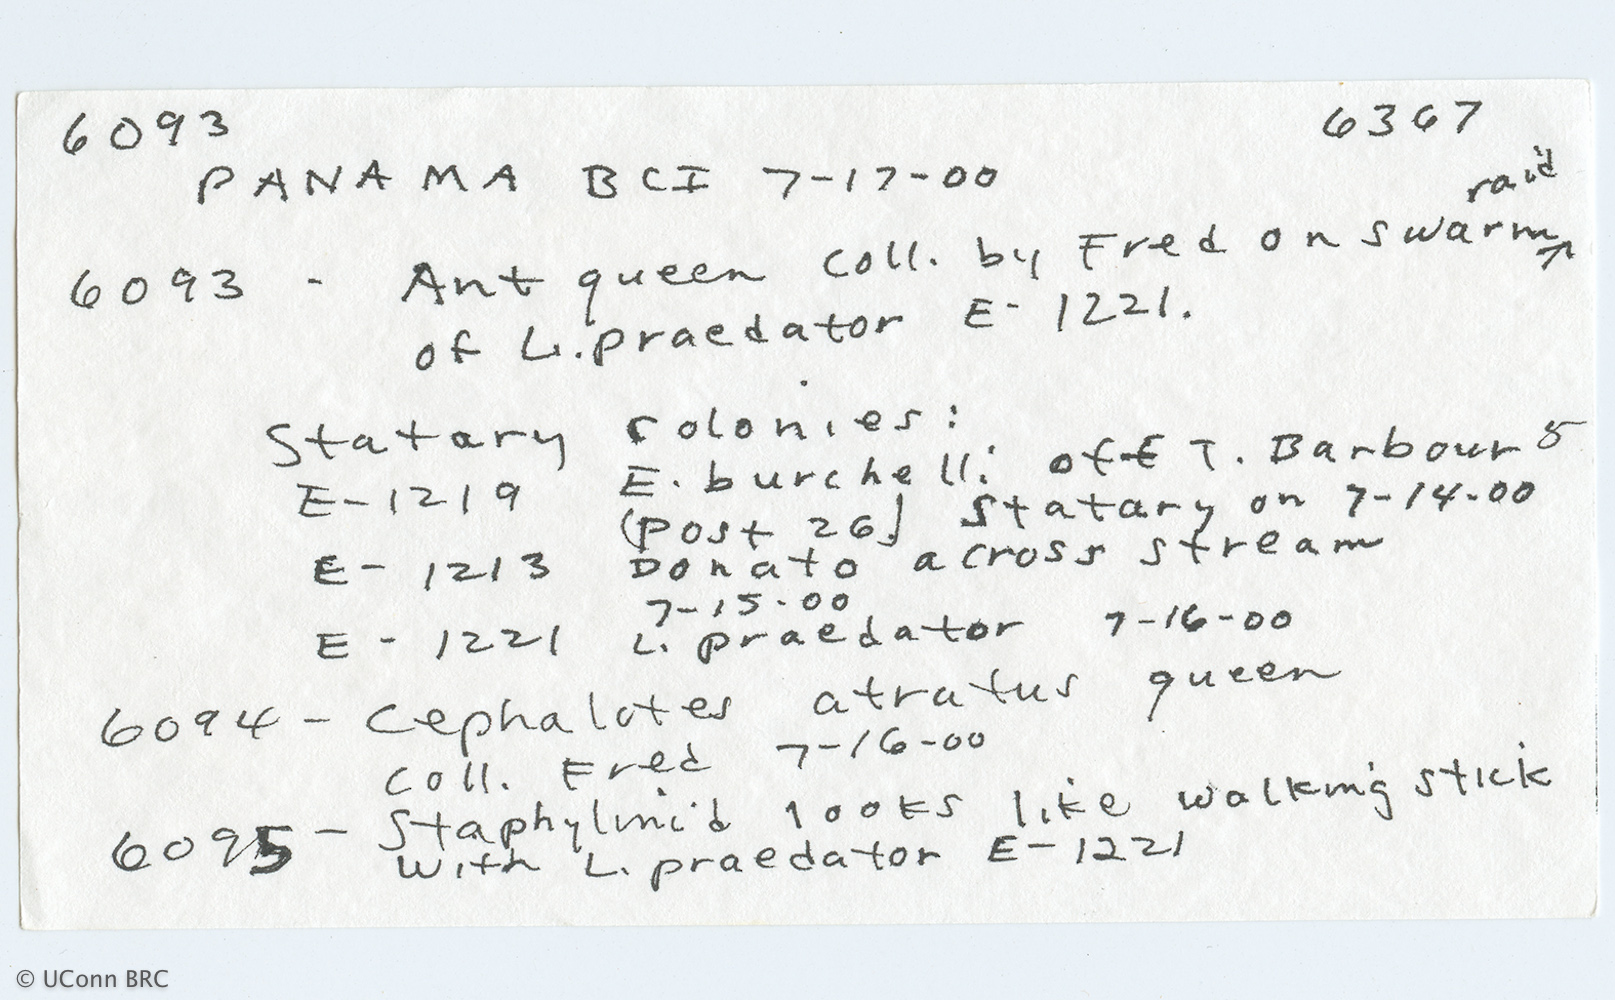 6093 6367
PANAMA BCI 7-17-00
raid
6093 - Ant queen coll. by Fred on swarm
of L. praedator E-1221.
Statary colonies:
E-1219 E. burchelli off T. Barbour 5
(Post 26) Statary on 7-14-00
E-1213 Donato across stream
7-15-00
E-1221 L. praedator 7-16-00
6094 - Cephalotes atratus queen
coll. Fred 7-16-00
6095 - Staphylinid looks like walking stick
with L. praedator E-1221
© UConn BRC